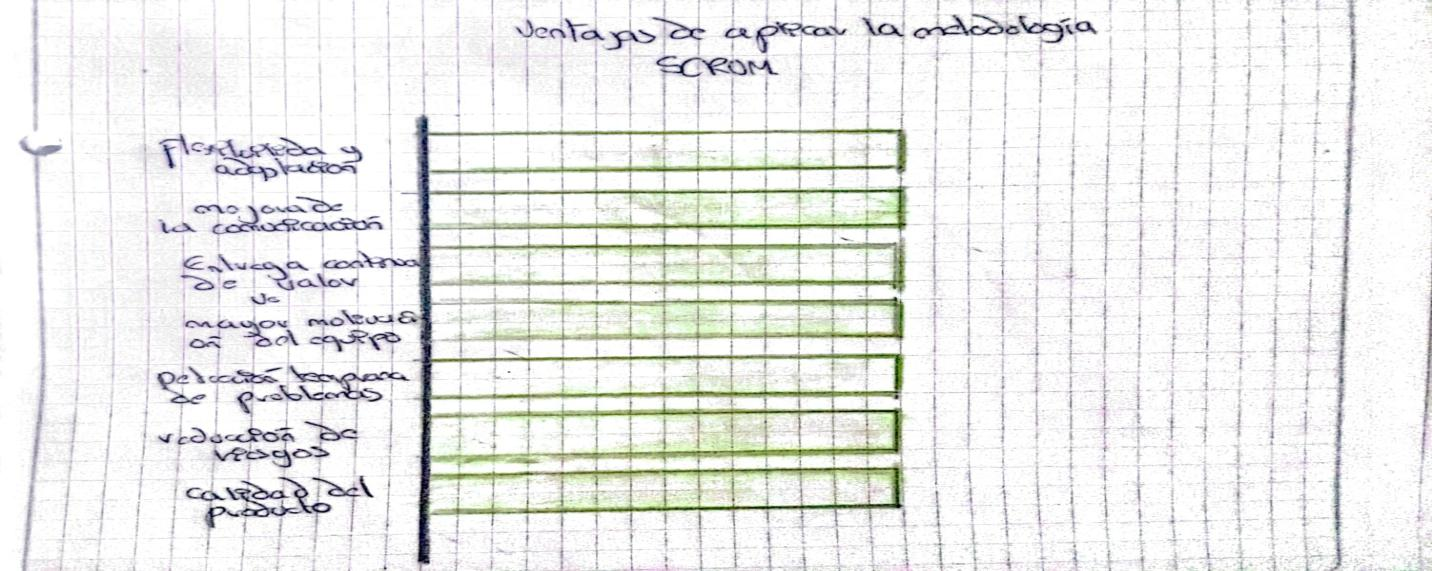 Ventajas de aplicar la metodología
SCRUM
Flexibilidad y
adaptación
mejora de
la comunicación
Entrega continua
de valor
mayor motivaci
ón del equipo
Detección temprana
de problemas
reducción de
riesgos
calidad del
producto